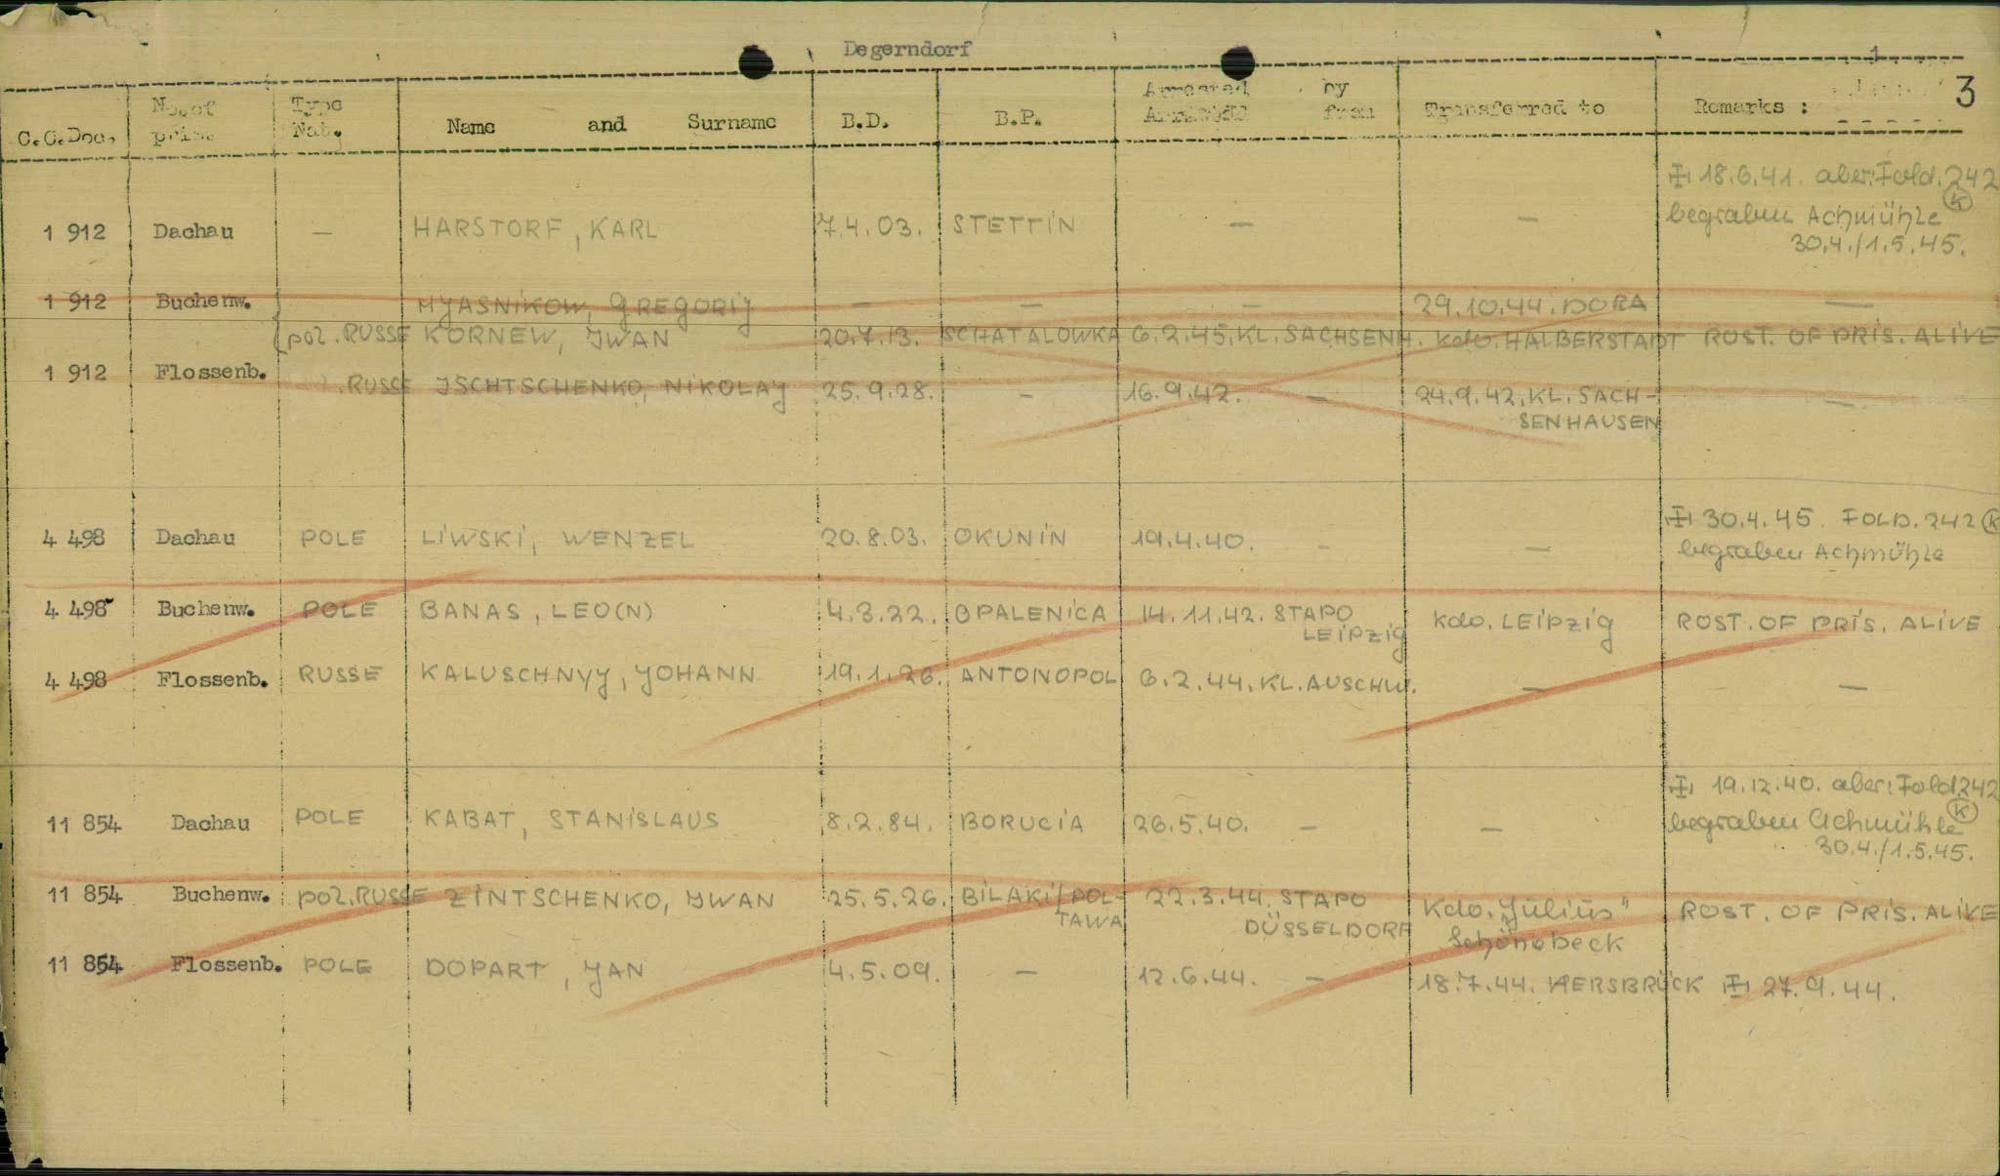 Degerndorf
1
3
C.C.Doc. No.of pris. Type Nat. Name and Surname B.D. B.P. Arrested by Transferred to Remarks :
from
卐 18.6.41. aber: Fold. 242
1 912 Dachau – HARSTORF, KARL 7.4.03. STETTIN – – begraben Achmühle (K)
30.4./1.5.45.
1 912 Buchenw. MJASNIKOW, GREGORIJ – – – 29.10.44. DORA –
pol. RUSSE KORNEW, JWAN 20.7.13. SCHATALOWKA 6.2.45. KL. SACHSENH. Kdo. HALBERSTADT ROST. OF PRIS. ALIVE
1 912 Flossenb. RUSSE JSCHTSCHENKO, NIKOLAJ 25.9.28. – 16.9.42. – 24.9.42. KL. SACH-
SENHAUSEN –
30.4.45. FOLD. 242 (K)
4 498 Dachau POLE LIWSKI, WENZEL 20.8.03. OKUNIN 19.4.40. – – begraben Achmühle
4 498 Buchenw. POLE BANAS, LEO(N) 4.3.22. OPALENICA 14.11.42. STAPO Kdo. LEIPZIG ROST. OF PRIS. ALIVE
LEIPZIG
4 498 Flossenb. RUSSE KALUSCHNYJ, JOHANN 19.1.26. ANTONOPOL 6.2.44. KL. AUSCHW. – –
19.12.40. aber: Fold 242
11 854 Dachau POLE KABAT, STANISLAUS 8.2.84. BORUCIA 26.5.40. – – begraben Achmühle (K)
30.4./1.5.45.
11 854 Buchenw. pol. RUSSE ZINTSCHENKO, JWAN 25.5.26. BILAKI/POL- 22.3.44. STAPO Kdo. "Julius" ROST. OF PRIS. ALIVE
TAWA DÜSSELDORF Schönebeck
11 854 Flossenb. POLE DOPART, JAN 4.5.09. – 12.6.44. – 18.7.44. HERSBRUCK 27.9.44.